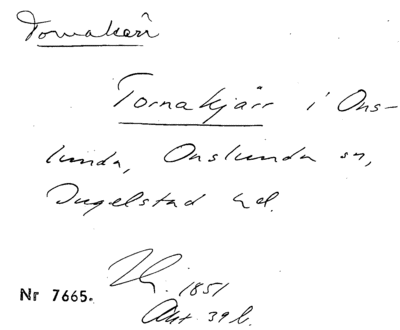 Tornakärr
Tornakjärr i Ons-
lunda, Onslunda sn,
Ingelstad hd.
1851
Nr 7665.
Akt 39 b.